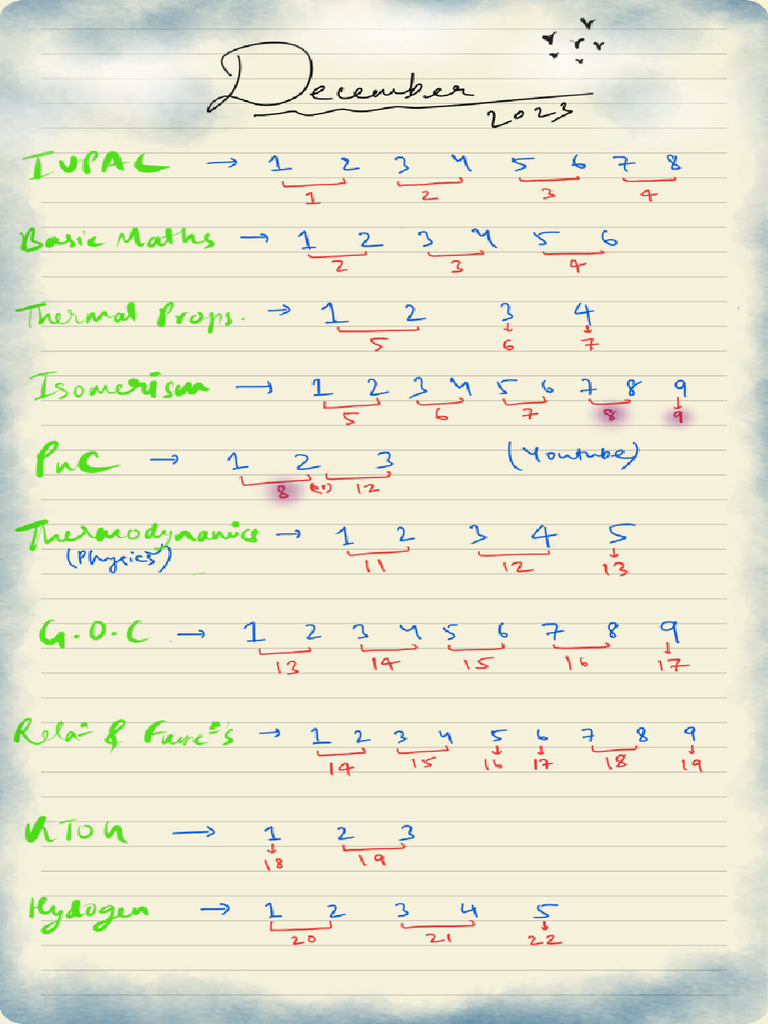 December
2023
IUPAC → 1 2 3 4 5 6 7 8
1 2 3 4
Basic Maths → 1 2 3 4 5 6
2 3 4
Thermal Props. → 1 2 3 4
5 6 7
Isomerism → 1 2 3 4 5 6 7 8 9
5 6 7 8 9
PnC → 1 2 3 (Youtube)
8 (or) 12
Thermodynamics → 1 2 3 4 5
(Physics)
11 12 13
G.O.C → 1 2 3 4 5 6 7 8 9
13 14 15 16 17
Rela= & Func=s → 1 2 3 4 5 6 7 8 9
14 15 16 17 18 19
KTOK → 1 2 3
18 19
Hydogen → 1 2 3 4 5
20 21 22